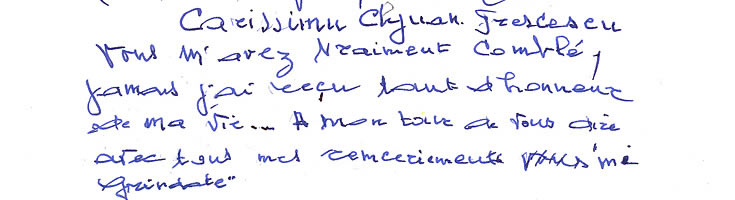 Carissimu Ghjuan. Frescescu
Vous m'avez vraiment comblé,
jamais j'ai reçu tant d'honneur
de ma vie... A mon tour de vous dire
avec tous mes remerciements